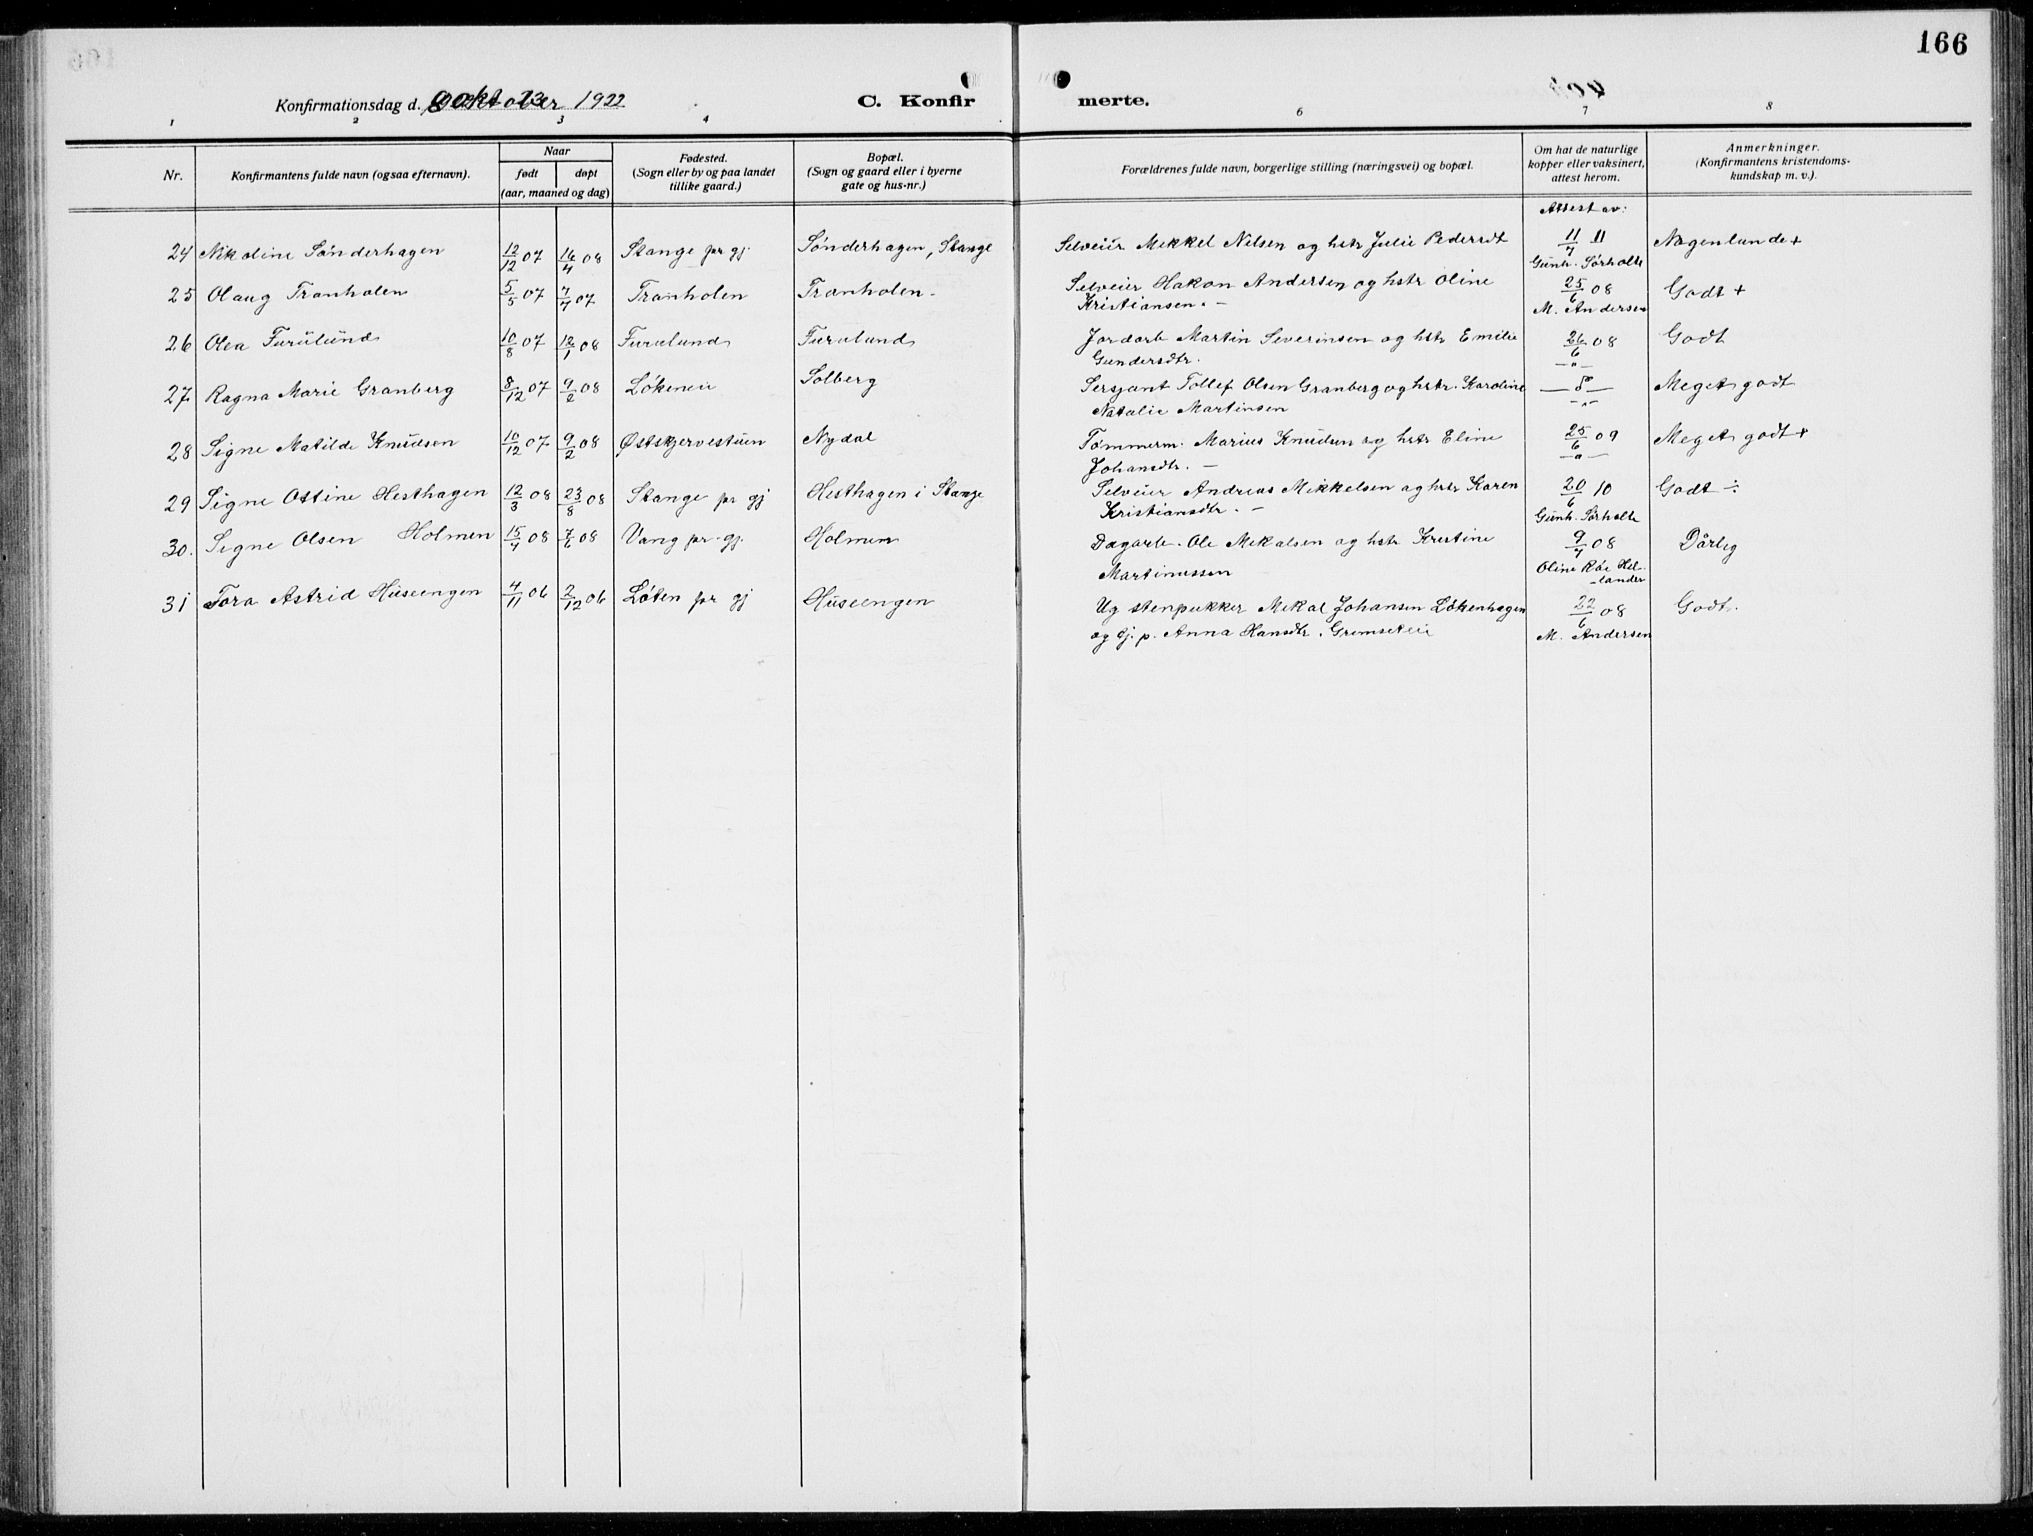 166
Konfirmationsdag d. oktober 1922
C. Konfirmerte.
1 2 3 4 6 7 8
Nr.
Konfirmantens fulde navn (ogsaa efternavn).
Naar
født døpt
(aar, maaned og dag)
Fødested.
(Sogn eller by og paa landet
tillike gaard.)
Bopæl.
(Sogn og gaard eller i byerne
gate og hus-nr.)
Forældrenes fulde navn, borgerlige stilling (næringsvei) og bopæl.
Om hat de naturlige
kopper eller vaksinert,
attest herom.
Anmerkninger.
(Konfirmantens kristendoms-
kundskap m. v.).
Attest av:
24 Nikoline Sønderhagen 12/12 07 16/4 08 Stange pr gj. Sønderhagen, Stange Selveier Mekkel Nilsen og hstr Julie Pedersdt 11/7 11 Nogenlunde +
Gunh. Sørholte
25 Olaug Tranholen 5/5 07 7/7 07 Tranholen Tranholen - Selveier Hakon Andersen og hstr Oline 25/6 08 Godt +
Kristiansen. - M. Andersen
26 Olea Furulund 10/8 07 12/1 08 Furulund Furulund Jordarb Martin Severinsen og hstr Emilie 26/6 08 Godt
Gundersdtr. -"-
27 Ragna Marie Granberg 8/12 07 9/2 08 Løkeneie Solberg Sersjant Tollef Olsen Granberg og hstr. Karoline — " — Meget godt
Natalie Martinsen -"-
28 Signe Matilde Knudsen 10/12 07 9/2 08 Østskjervestuen Nydal Tømmerm. Marius Knudsen og hstr Eline 25/6 09 Meget godt +
Johansdtr. - -"-
29 Signe Ostine Hesthagen 12/3 08 23/8 08 Stange pr gj Hesthagen i Stange Selveier Andreas Mikkelsen og hstr Karen 20/6 10 Godt ÷
Kristiansdtr. - Gunh. Sørholte
30. Signe Olsen Holmen 15/4 08 7/6 08 Vang pr. gj. Holmen Dagarb. Ole Mekalsen og hstr Kristine 9/7 08 Dårlig
Martinussen Oline Råe Hel-
lander
31 Tora Astrid Huseengen 4/11 06 2/12 06 Løten pr gj Huseengen Ug stenpukker Mekal Johansen Løkenhagen 22/6 08 Godt.
og Gj. p. Anna Hansdtr. Grimseteie M. Andersen